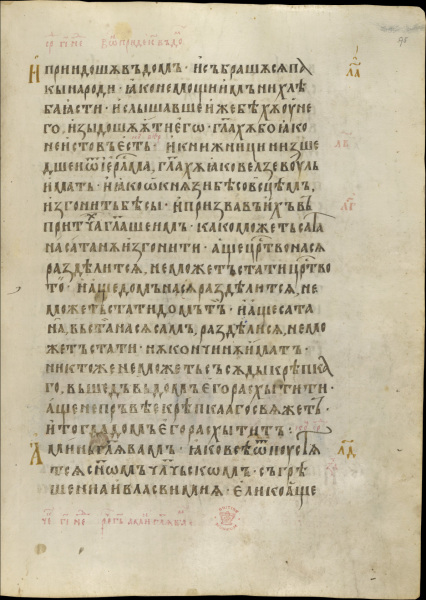 И приидошѧ въ домъ · и събрашѧ сѧ пѧ
кы народи · ꙗко не мощи имъ ни хлѣ
ба ꙗсти · и слышавше иже бѣхѫ оу не
го, изыдошѧ ѧти его · гл҃ахѫ бо ꙗко
неистовъ есть · и книжници низше
дшеи ѿ іерⷭ҇лма, гл҃ахѫ ꙗко велзевоуль
имать · и ꙗко ѡ кнѧзи бѣсовсцѣмь,
изгонить бѣсы · и призвавъ ихъ въ
притчⷯа гл҃аше имъ · како можеть
сатана изгонити · аще црⷭ҇тво на сѧ
раздѣлитсѧ, не можеть стати црⷭ҇тво
то · и аще домъ на сѧ раздѣлитсѧ, не
можеть стати домъ тъ · и аще сата
на, въста на сѧ самъ, раздѣлисѧ, не мо
жеть стати · нѫ кончинѫ имать ·
никтоже не можеть съсѫды крѣпка
го, вьшедъ въ домъ его расхытити ·
аще не прьвѣе крѣпкааго свѧжеть ·
и тогда домъ его расхытить ·
Аминь гл҃ѧ вамъ · ꙗко всѣ ѿпоустѧ
тсѧ сн҃омъ чл҃чьскомъ · съгрѣ
шениа и власвимиѧ · елико аще